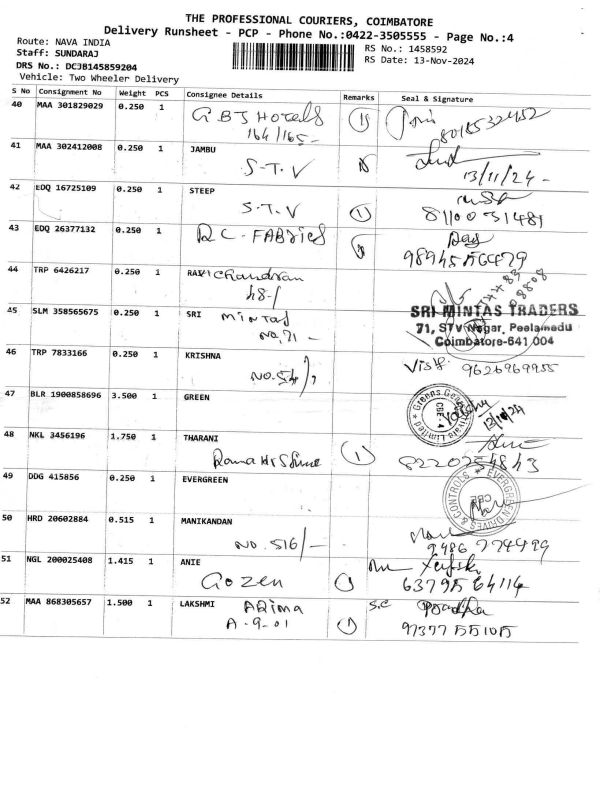 THE PROFESSIONAL COURIERS, COIMBATORE
Delivery Runsheet - PCP - Phone No.:0422-3505555 - Page No.:4
Route: NAVA INDIA
RS No.: 1458592
Staff: SUNDARAJ
RS Date: 13-Nov-2024
DRS No.: DCJB145859204
Vehicle: Two Wheeler Delivery
S No Consignment No Weight PCS Consignee Details Remarks Seal & Signature
40 MAA 301829029 0.250 1 GBJ Hotels
164/165-
41 MAA 302412008 0.250 1 JAMBU
S.T.V 13/11/24-
42 EDQ 16725109 0.250 1 STEEP
S.T.V 8110031481
43 EDQ 26377132 0.250 1 R.C. FABRICS
44 TRP 6426217 0.250 1 RAVIChandran
48-1
45 SLM 358565675 0.250 1 SRI MINTAS
NO. 71 -
SRI MINTAS TRADERS
71, STV Nagar, Peelamedu
Coimbatore-641 004
46 TRP 7833166 0.250 1 KRISHNA
NO. 54/7 9626969955
47 BLR 1900858696 3.500 1 GREEN
13/11/24
48 NKL 3456196 1.750 1 THARANI
8220254843
49 DDG 415856 0.250 1 EVERGREEN
EVERGREEN DRIVES & CONTROLS CBE
50 HRD 20602884 0.515 1 MANIKANDAN
NO. 516/- 9486774499
51 NGL 200025408 1.415 1 ANIE
Gozen 6379564114
52 MAA 868305657 1.500 1 LAKSHMI ARima S.C
A-9-01 9737755105